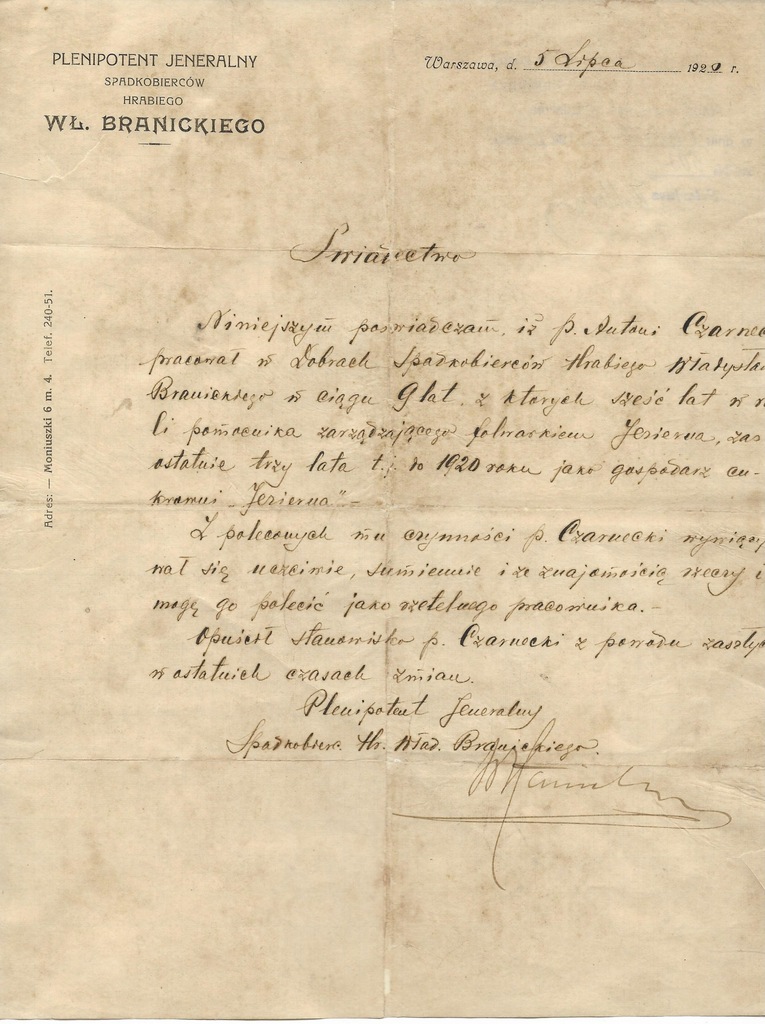 PLENIPOTENT JENERALNY
SPADKOBIERCÓW
HRABIEGO
WŁ. BRANICKIEGO
Warszawa, d. 5 Lipca 1920 r.
Adres: — Moniuszki 6 m. 4. Telef. 240-51.
Świadectwo
Niniejszym poświadczam, iż p. Antoni Czarnec
pracował w Dobrach Spadkobierców Hrabiego Władysła
Branickiego w ciągu 9 lat, z których sześć lat w r
li pomocnika zarządzającego folwarkiem Jezierna, zaś
ostatnie trzy lata t. j. do 1920 roku jako gospodarz cu-
krowni „Jezierna" –
Z poleconych mu czynności p. Czarnecki wywiązy
wał się uczciwie, sumiennie i ze znajomością rzeczy i
mogę go polecić jako rzetelnego pracownika. –
Opuścił stanowisko p. Czarnecki z powodu zaszłyc
w ostatnich czasach zmian.
Plenipotent Jeneralny
Spadkobierc. Hr. Wład. Branickiego.